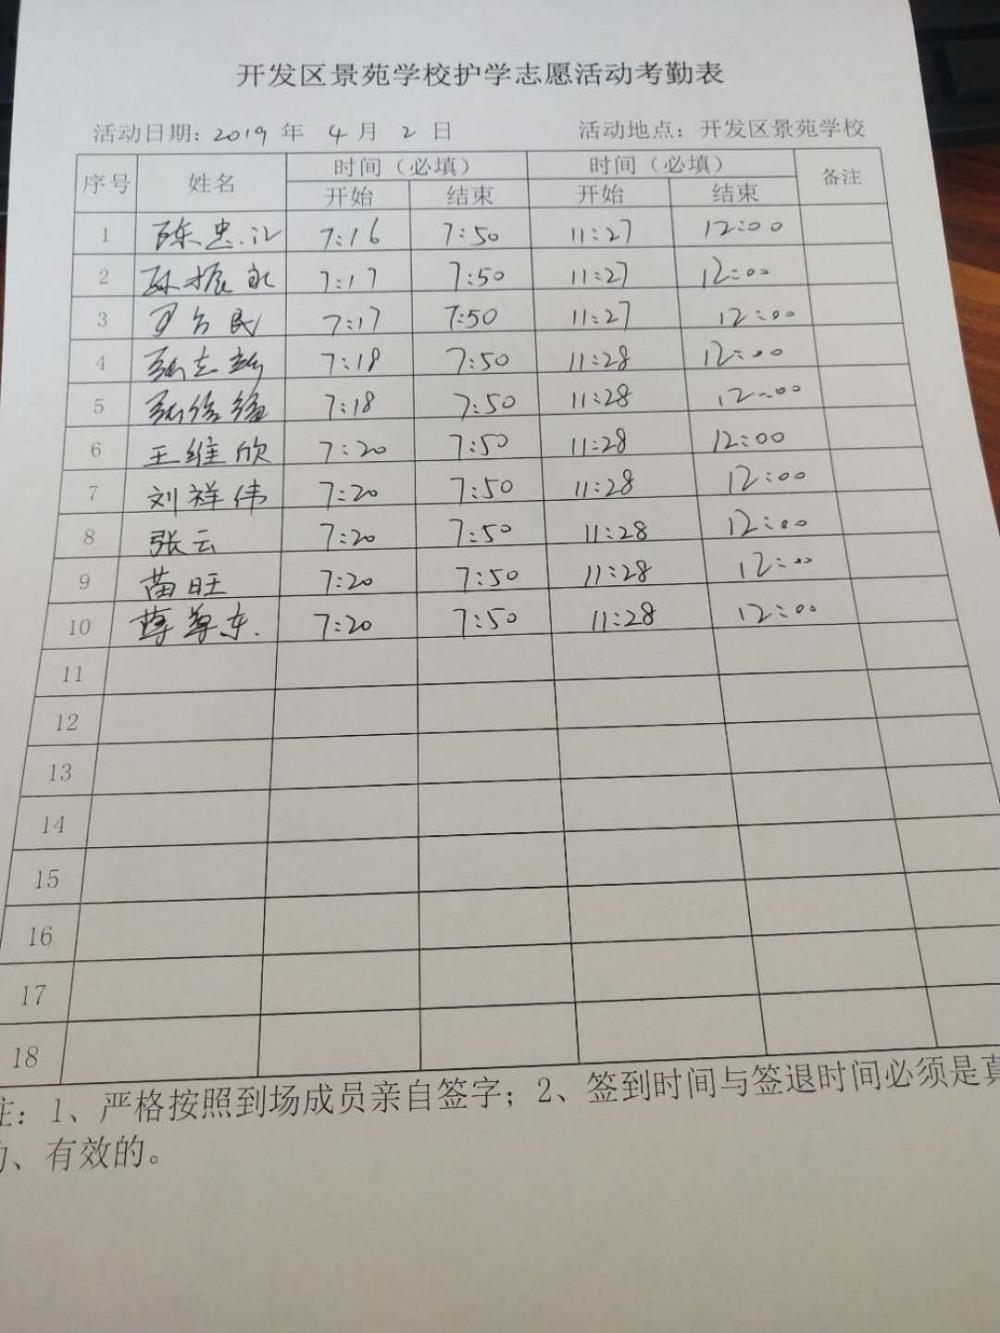 开发区景苑学校护学志愿活动考勤表
活动日期: 2019 年 4 月 2 日 活动地点: 开发区景苑学校
序号 姓名 时间（必填） 时间（必填） 备注
开始 结束 开始 结束
1 陈忠江 7:16 7:50 11:27 12:00
2 孙振永 7:17 7:50 11:27 12:00
3 民 7:17 7:50 11:27 12:00
4 志 7:18 7:50 11:28 12:00
5 7:18 7:50 11:28 12:00
6 王维欣 7:20 7:50 11:28 12:00
7 刘祥伟 7:20 7:50 11:28 12:00
8 张云 7:20 7:50 11:28 12:00
9 苗旺 7:20 7:50 11:28 12:00
10 尊东 7:20 7:50 11:28 12:00
11
12
13
14
15
16
17
18
注: 1、严格按照到场成员亲自签字; 2、签到时间与签退时间必须是真
的、有效的。